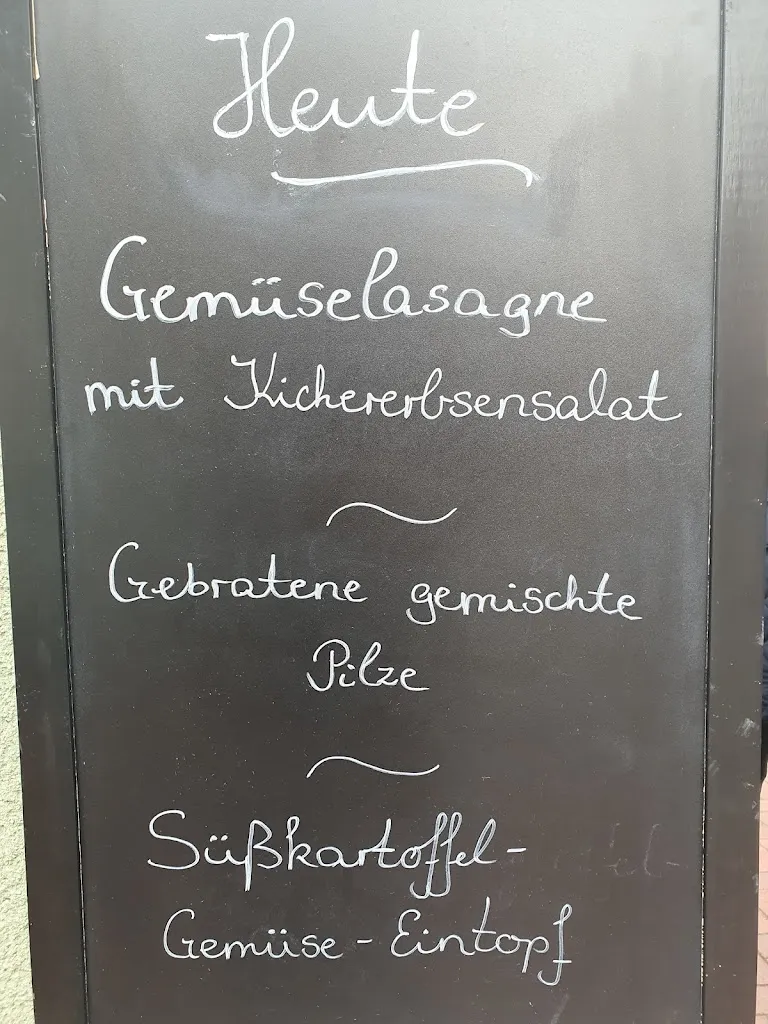 Heute
Gemüselasagne
mit Kichererbsensalat
Gebratene gemischte
Pilze
Süßkartoffel-
Gemüse-Eintopf